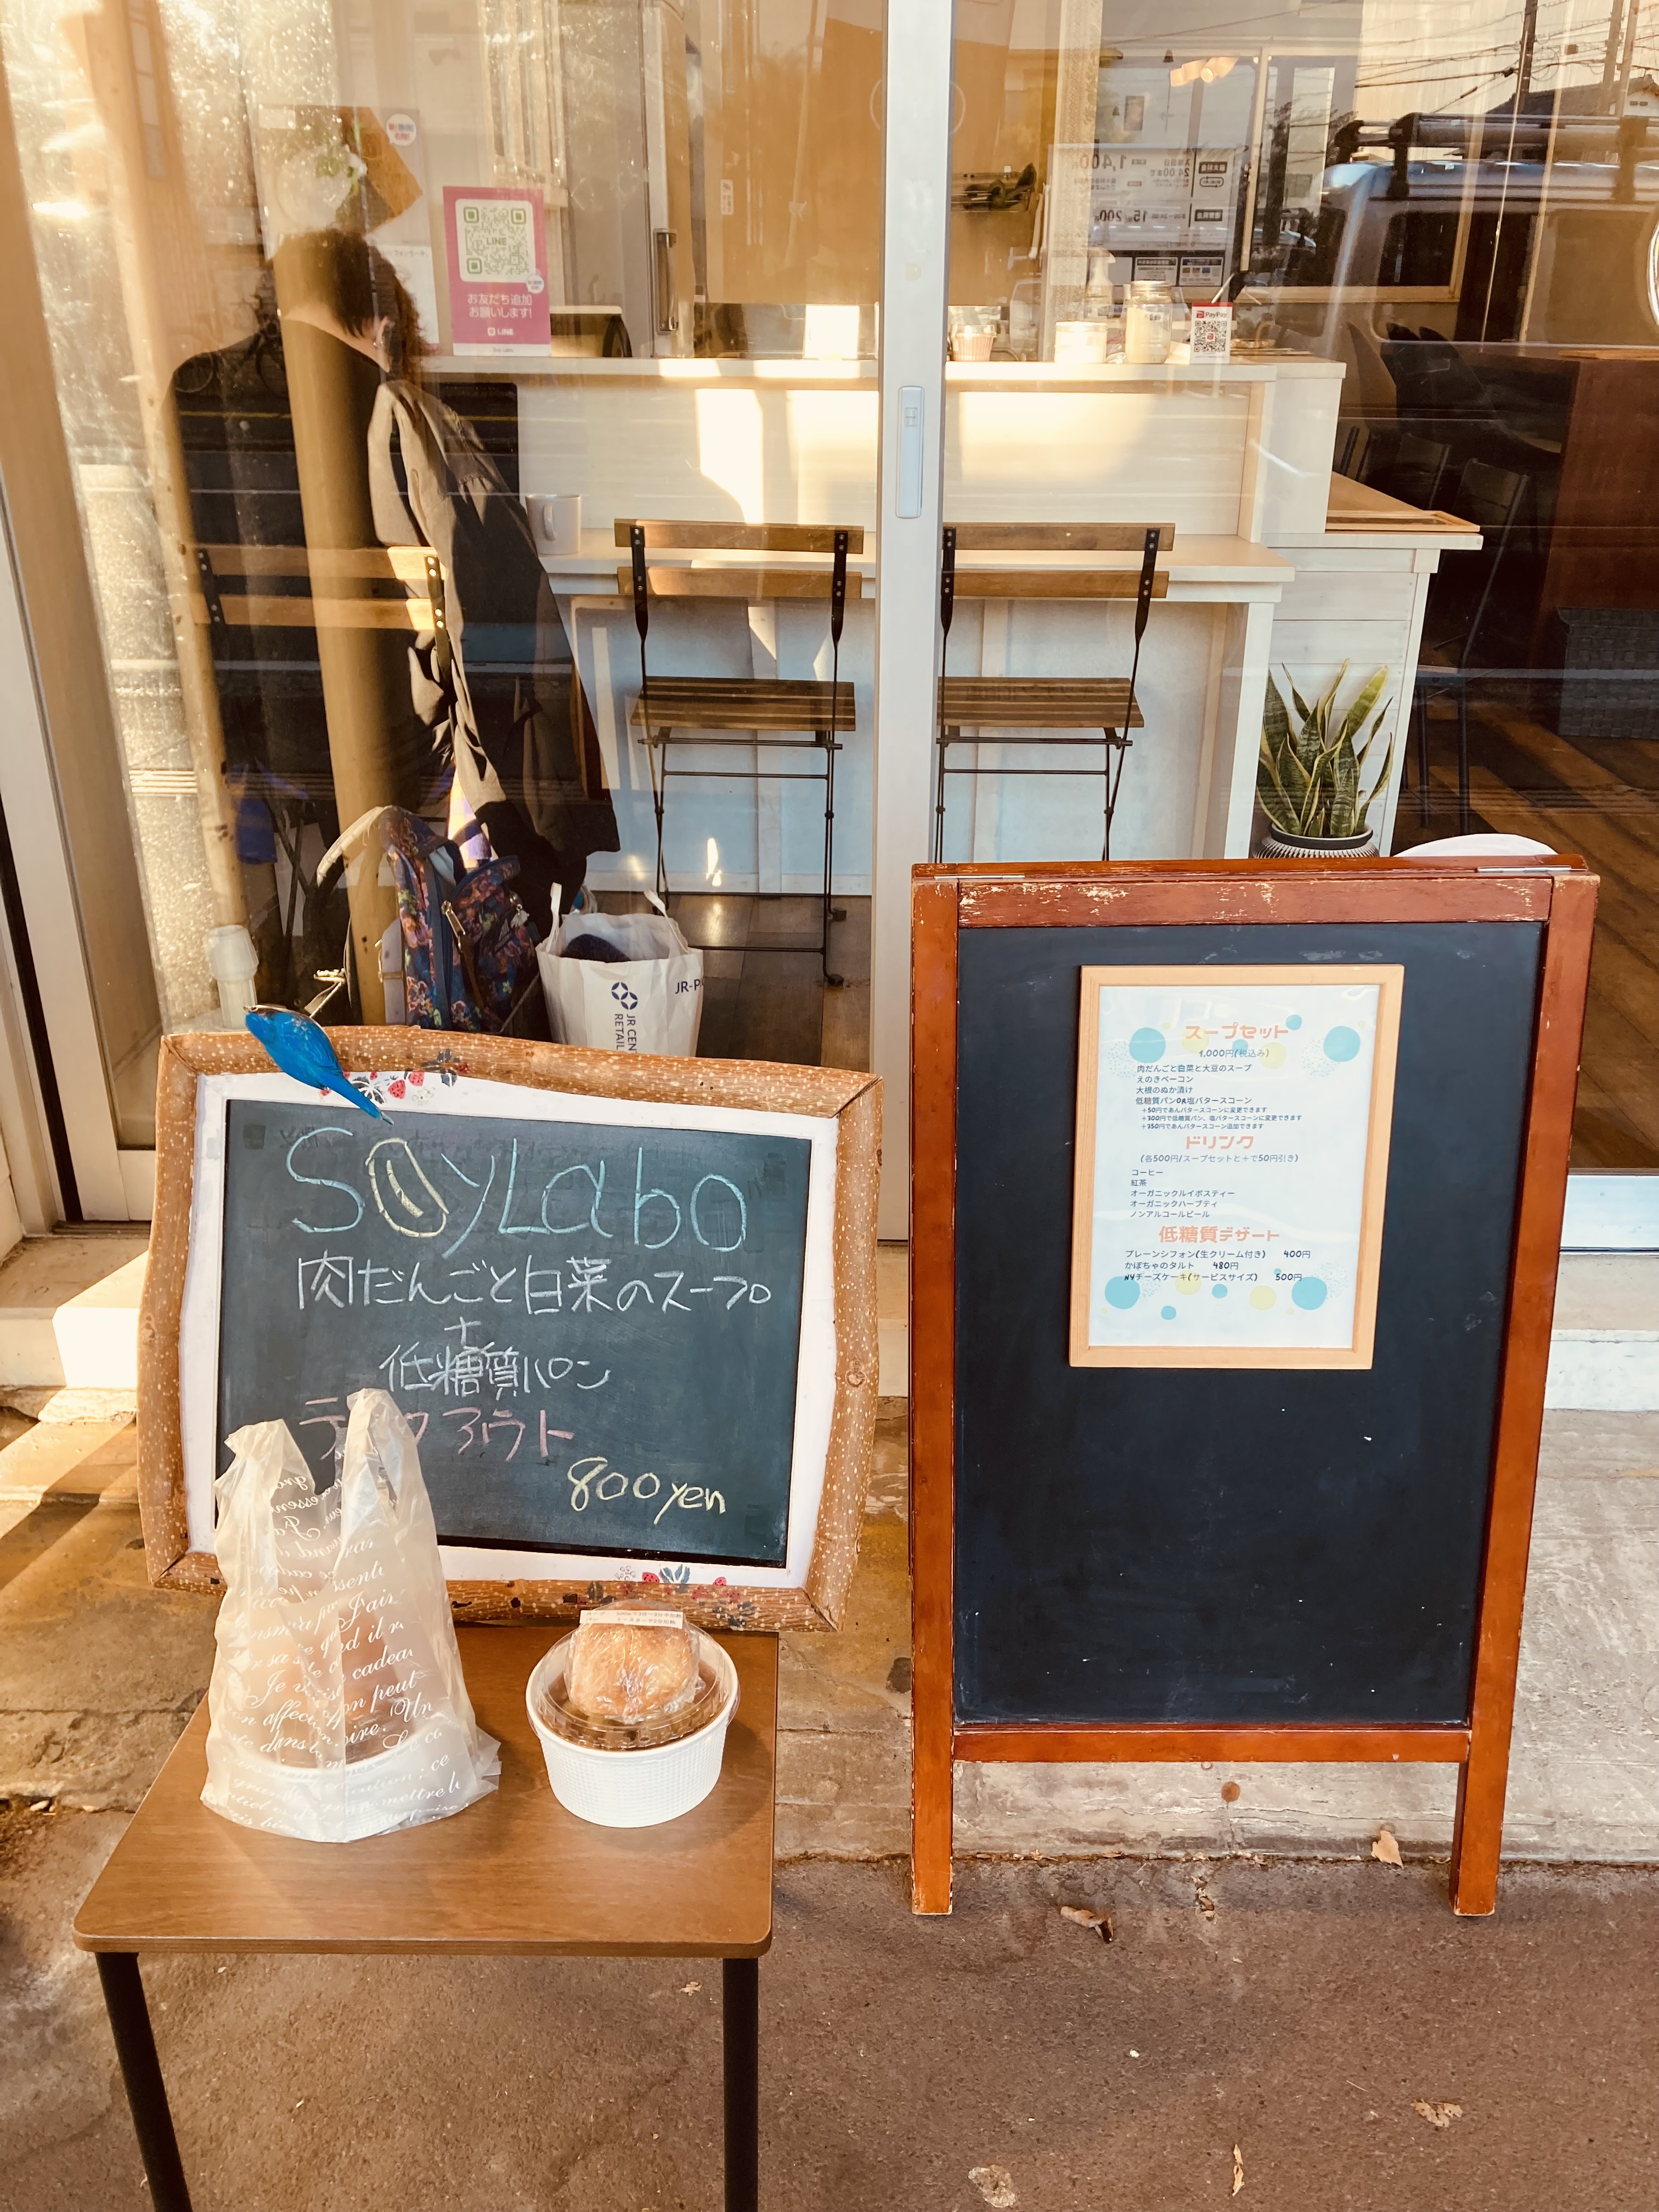 LINE
お友だち追加
お願いします!
LINE
PayPay
JR CENT
RETAIL
JR-P
SOYLabo
肉だんごと白菜のスープ
+
低糖質パン
テイクアウト
800yen
スープセット
1,000円(税込み)
肉だんごと白菜と大豆のスープ
えのきベーコン
大根のぬか漬け
低糖質パンOR塩バタースコーン
+50円であんバタースコーンに変更できます
+300円で低糖質パン、塩バタースコーンに変更できます
+350円であんバタースコーン追加できます
ドリンク
(各500円/スープセットと+で50円引き)
コーヒー
紅茶
オーガニックルイボスティー
オーガニックハーブティ
ノンアルコールビール
低糖質デザート
プレーンシフォン(生クリーム付き) 400円
かぼちゃのタルト 480円
NYチーズケーキ(サービスサイズ) 500円